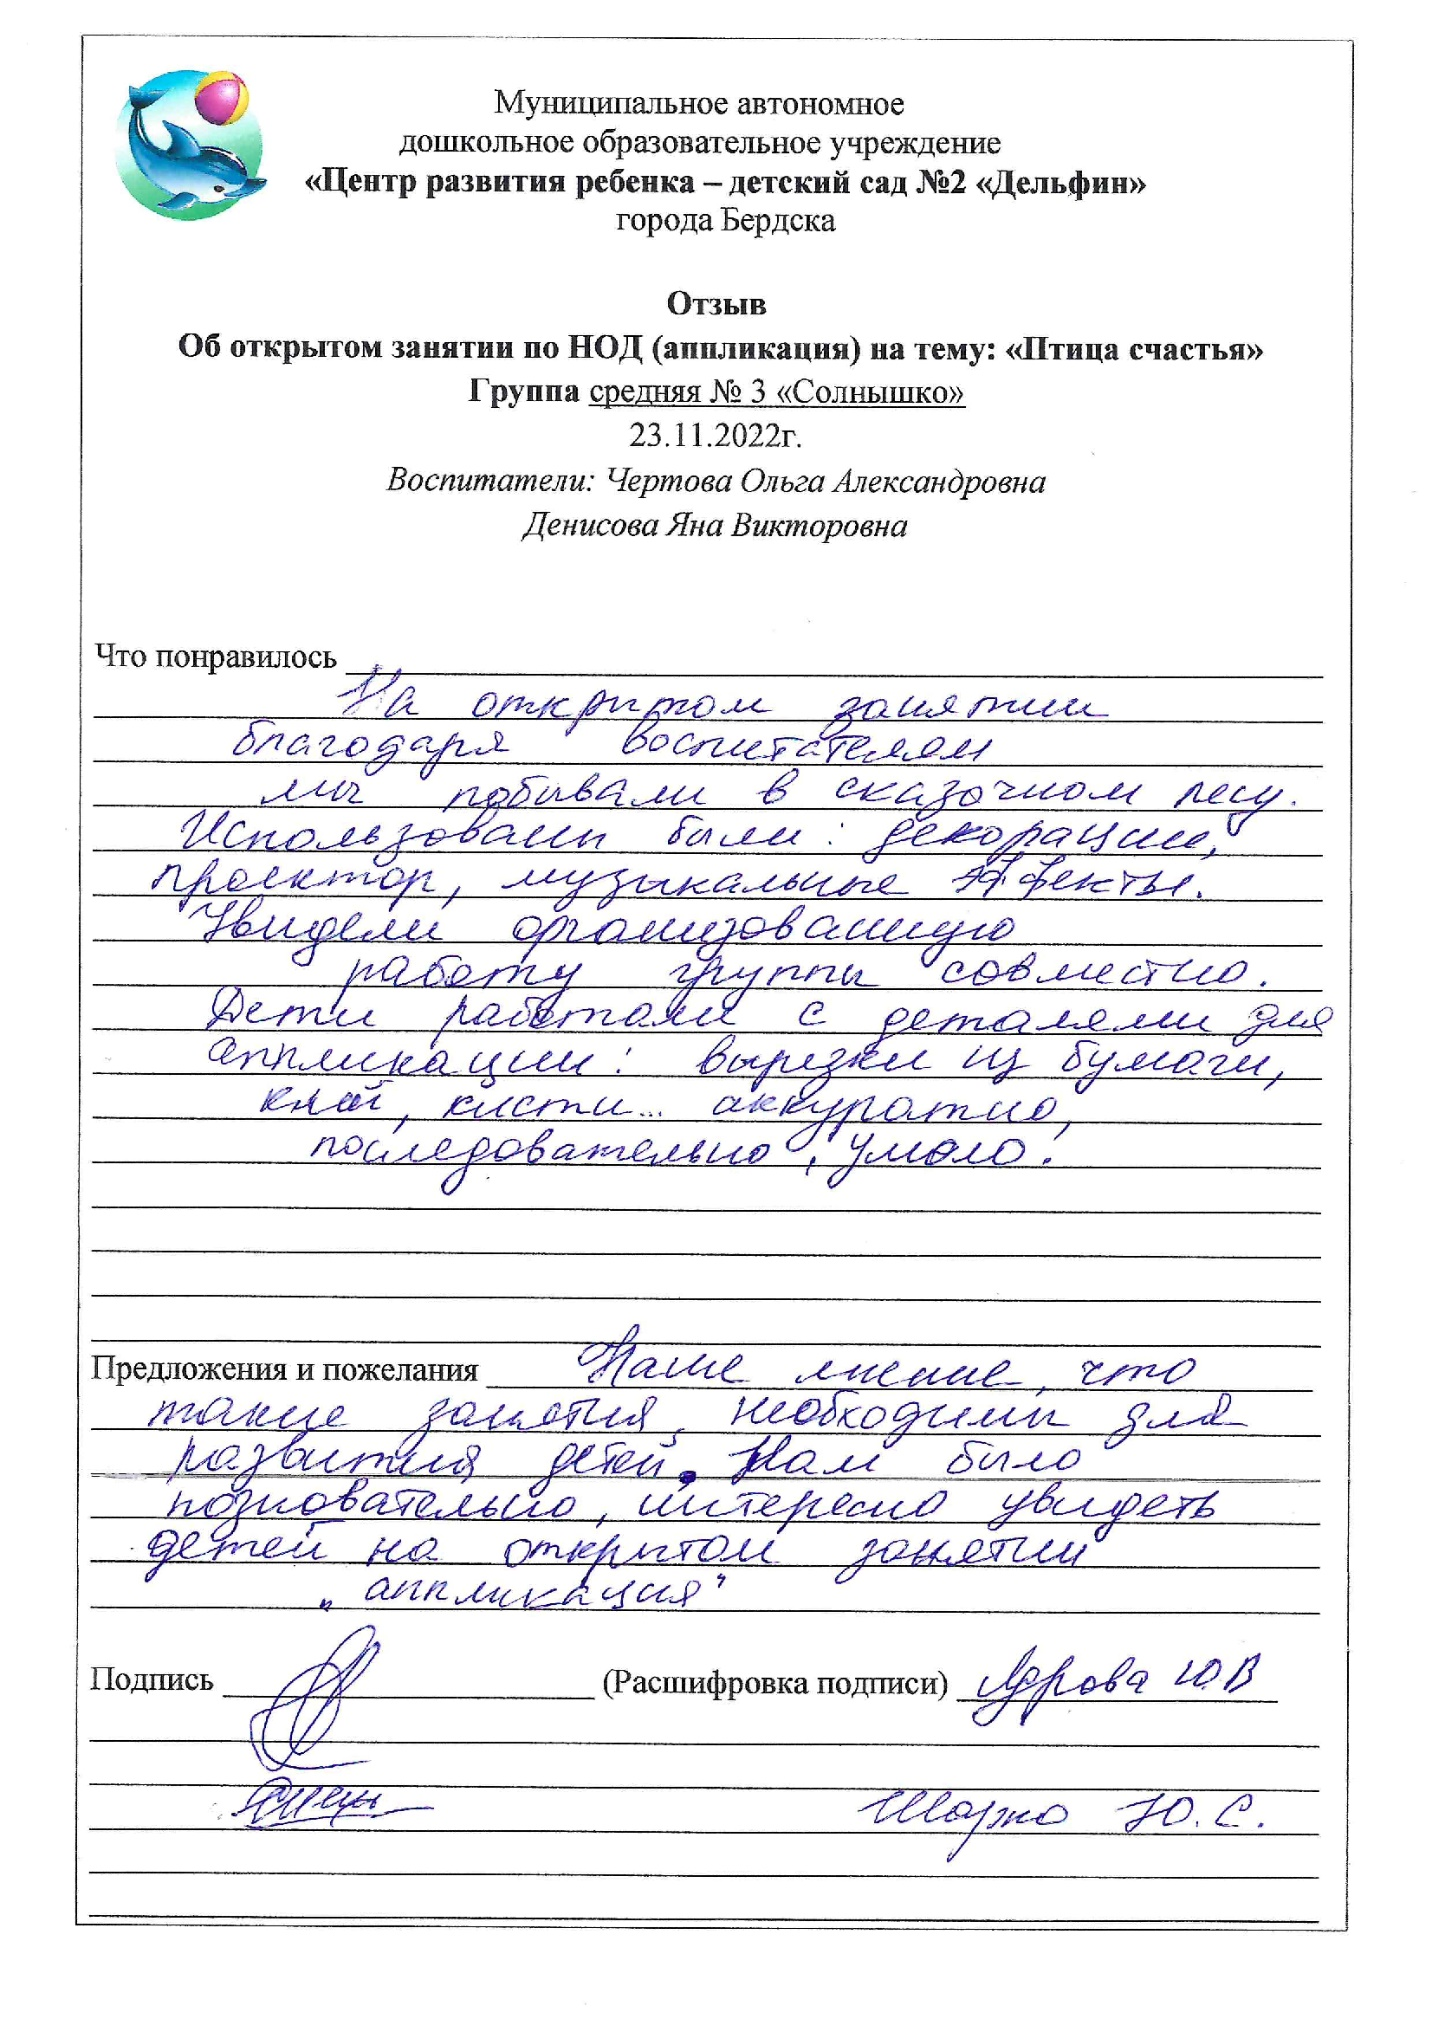 Муниципальное автономное
дошкольное образовательное учреждение
«Центр развития ребенка – детский сад №2 «Дельфин»
города Бердска
Отзыв
Об открытом занятии по НОД (аппликация) на тему: «Птица счастья»
Группа средняя № 3 «Солнышко»
23.11.2022г.
Воспитатели: Чертова Ольга Александровна
Денисова Яна Викторовна
Что понравилось
На открытом занятии
благодаря воспитателям
мы побывали в сказочном лесу.
Использованы были: декорации,
проектор, музыкальные эффекты.
Увидели организованную
работу группы совместно.
Дети работали с деталями для
аппликации: вырезки из бумаги,
клей, кисти... аккуратно,
последовательно, умело.
Предложения и пожелания Наше мнение, что
такие занятия, необходимы для
развития детей. Нам было
познавательно, интересно увидеть
детей на открытом занятии
„аппликация"
Подпись (Расшифровка подписи) Ю.В
Ю.С.